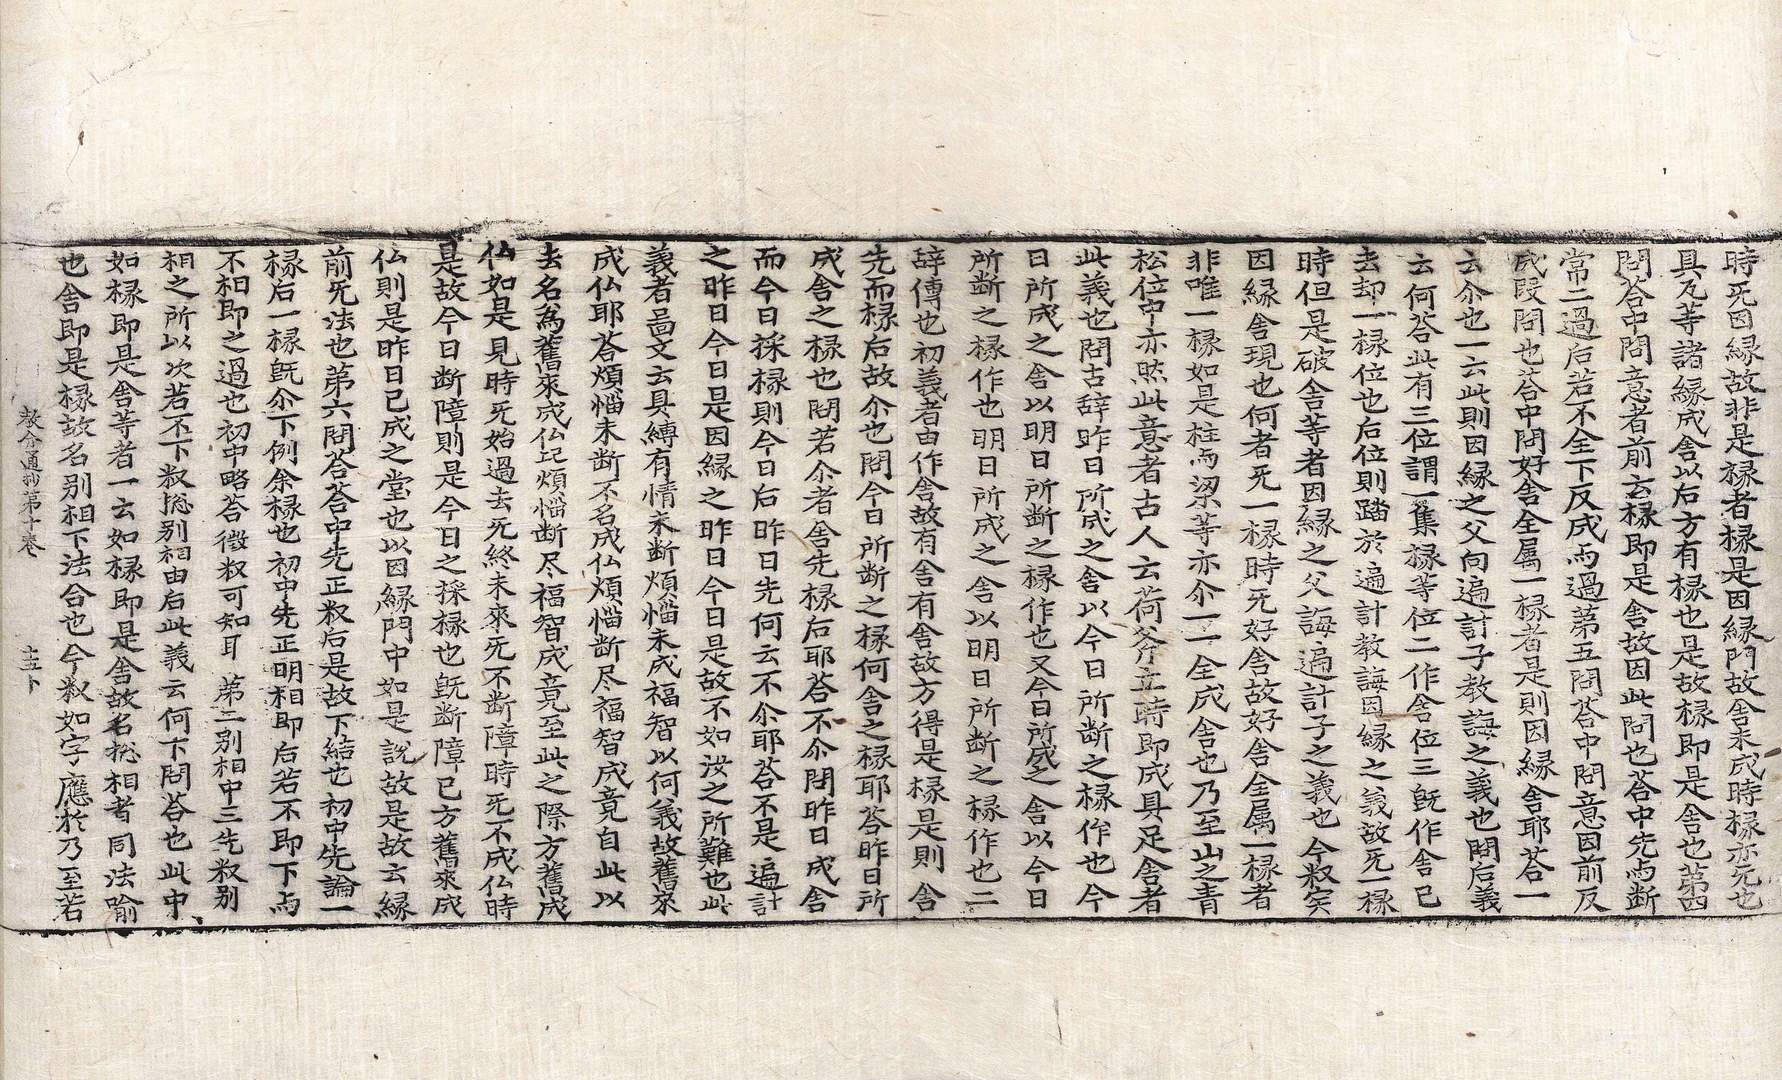 時旡因縁故非是椽者椽是因縁門故舎未成時椽亦旡也
具瓦等諸縁成舎以后方有椽也是故椽即是舎也苐四
問荅中問意者前云椽即是舎故因此問也荅中先与断
常二過后若不全下反成与過苐五問荅中問意因前反
成叚問也荅中問好舎全属一椽者是則因縁舎耶荅一
云尒也一云此則因縁之父向遍計子教誨之義也問后義
云何荅此有三位謂一集椽等位二作舎位三旣作舎已
去却一椽位也后位則踏於遍計教誨因縁之義故旡一椽
時但是破舎等者因縁之父誨遍計子之義也今釈宲
因縁舎現也何者旡一椽時旡好舎故好舎全属一椽者
非唯一椽如是柱与梁等亦尒一一全成舎也乃至山之青
松位中亦然此意者古人云荷斧斤立時即成具足舎者
此義也問古辞昨日所成之舎以今日所断之椽作也今
日所成之舎以明日所断之椽作也又今日所成之舎以今日
所断之椽作也明日所成之舎以明日所断之椽作也二
辞傳也初義者由作舎故有舎有舎故方得是椽是則舎
先而椽后故尒也問今日所断之椽何舎之椽耶荅昨日所
成舎之椽也問若尒者舎先椽后耶荅不尒問昨日成舎
而今日採椽則今日后昨日先何云不尒耶荅不是遍計
之昨日今日是因縁之昨日今日是故不如汝之所難也此
義者啚文云具縛有情未断煩惱未成福智以何義故舊來
成仏耶荅煩惱未断不名成仏煩惱断尽福智成竟自此以
去名為舊來成仏 煩惱断尽福智成竟至此之際方舊成
仏如是見時旡始過去旡終未來旡不断障時旡不成仏時
是故今日断障則是今日之採椽也旣断障已方舊來成
仏則是昨日已成之堂也以因縁門中如是說故是故云縁
前旡法也苐六問荅荅中先正釈后是故下結也初中先論一
椽后一椽旣尒下例余椽也初中先正明相即后若不即下与
不相即之過也初中略荅徵釈可知耳 苐二别相中三先釈别
相之所以次若不下釈捴别相由后此義云何下問荅也此中
如椽即是舎等者一云如椽即是舎故名捴相者同法喻
也舎即是椽故名别相下法合也今釈如字應於乃至若
教分通抄苐十卷 十五卜